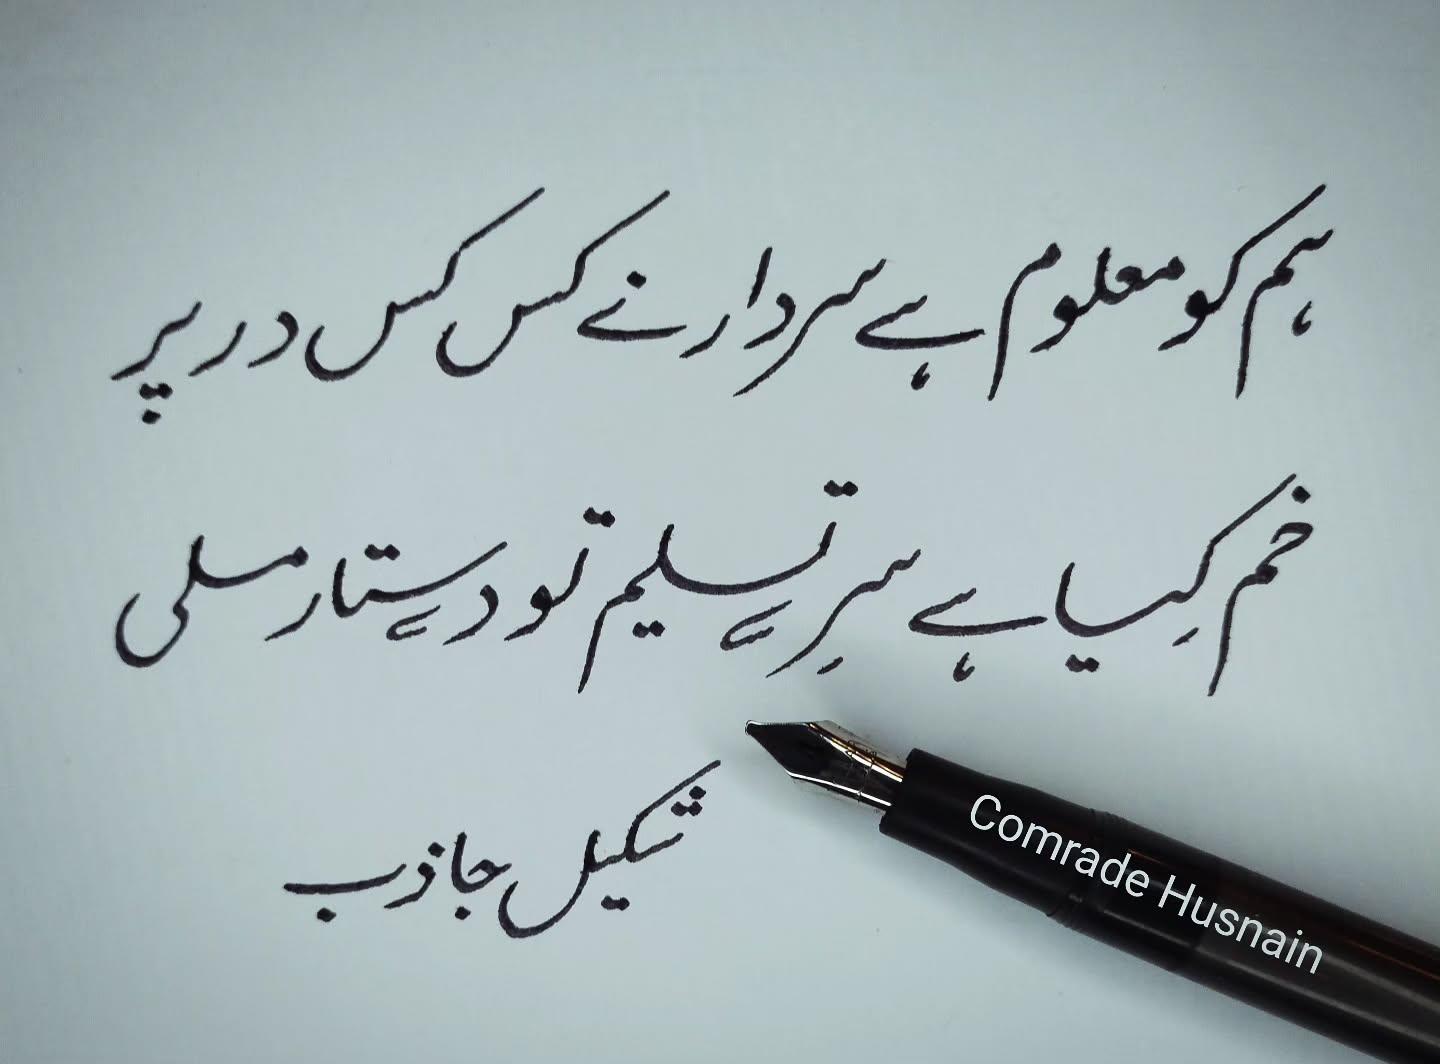 ہم کو معلوم ہے سردار نے کس کس در پر
خم کِیا ہے سرِ تسلیم تو دستار ملی
شکیل جاذب
Comrade Husnain